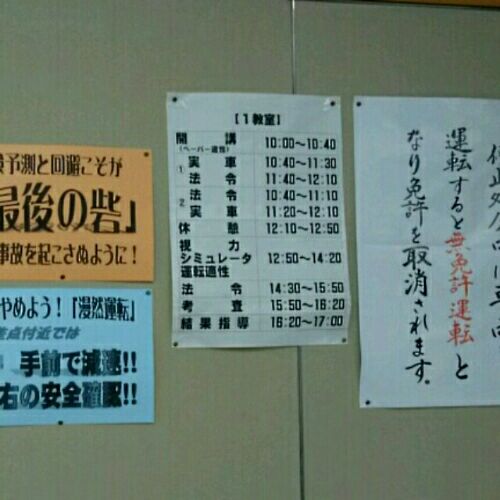 予測と回避こそが
最後の砦」
事故を起こさぬように！
やめよう！「漫然運転」
差点付近では
手前で減速!!
右の安全確認!!
［１教室］
開　講 10:00～10:40
（ペーパー適性）
1 実　車 10:40～11:30
法　令 11:40～12:10
2 法　令 10:40～11:10
実　車 11:20～12:10
休　憩 12:10～12:50
視　力
シミュレータ 12:50～14:20
運転適性
法　令 14:30～15:50
考　査 15:50～16:20
結果指導 16:20～17:00
運転すると無免許運転と
なり免許を取消されます。